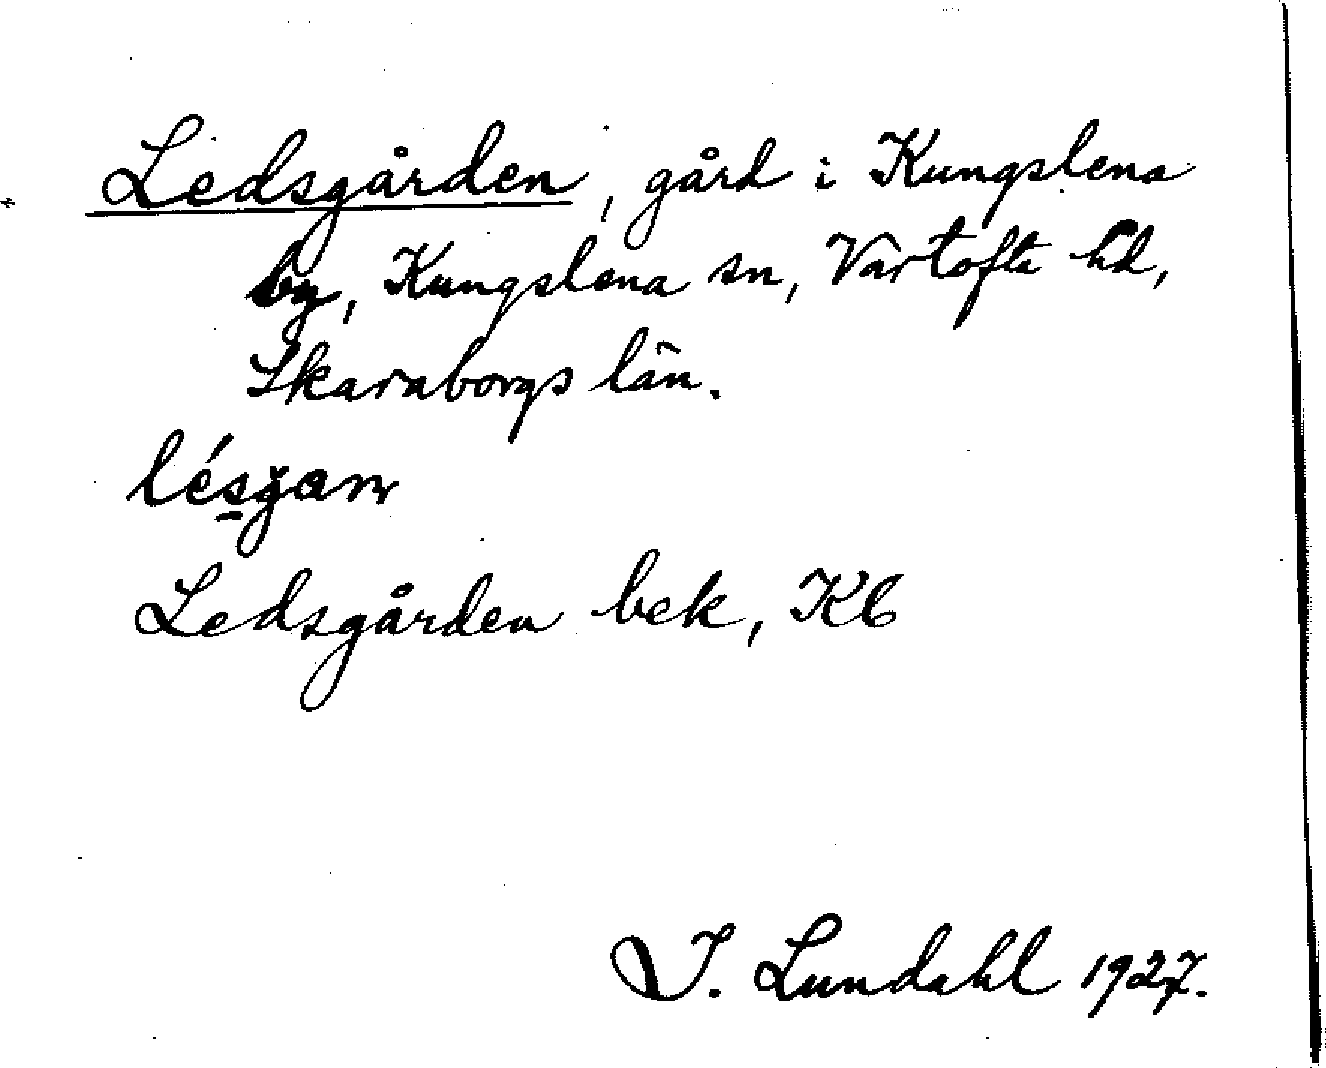 Ledsgården, gård i Kungslena
by, Kungslena sn, Vartofta hd,
Skaraborgs län.
Ledsgården bek, Kb
I. Lundahl 1927.